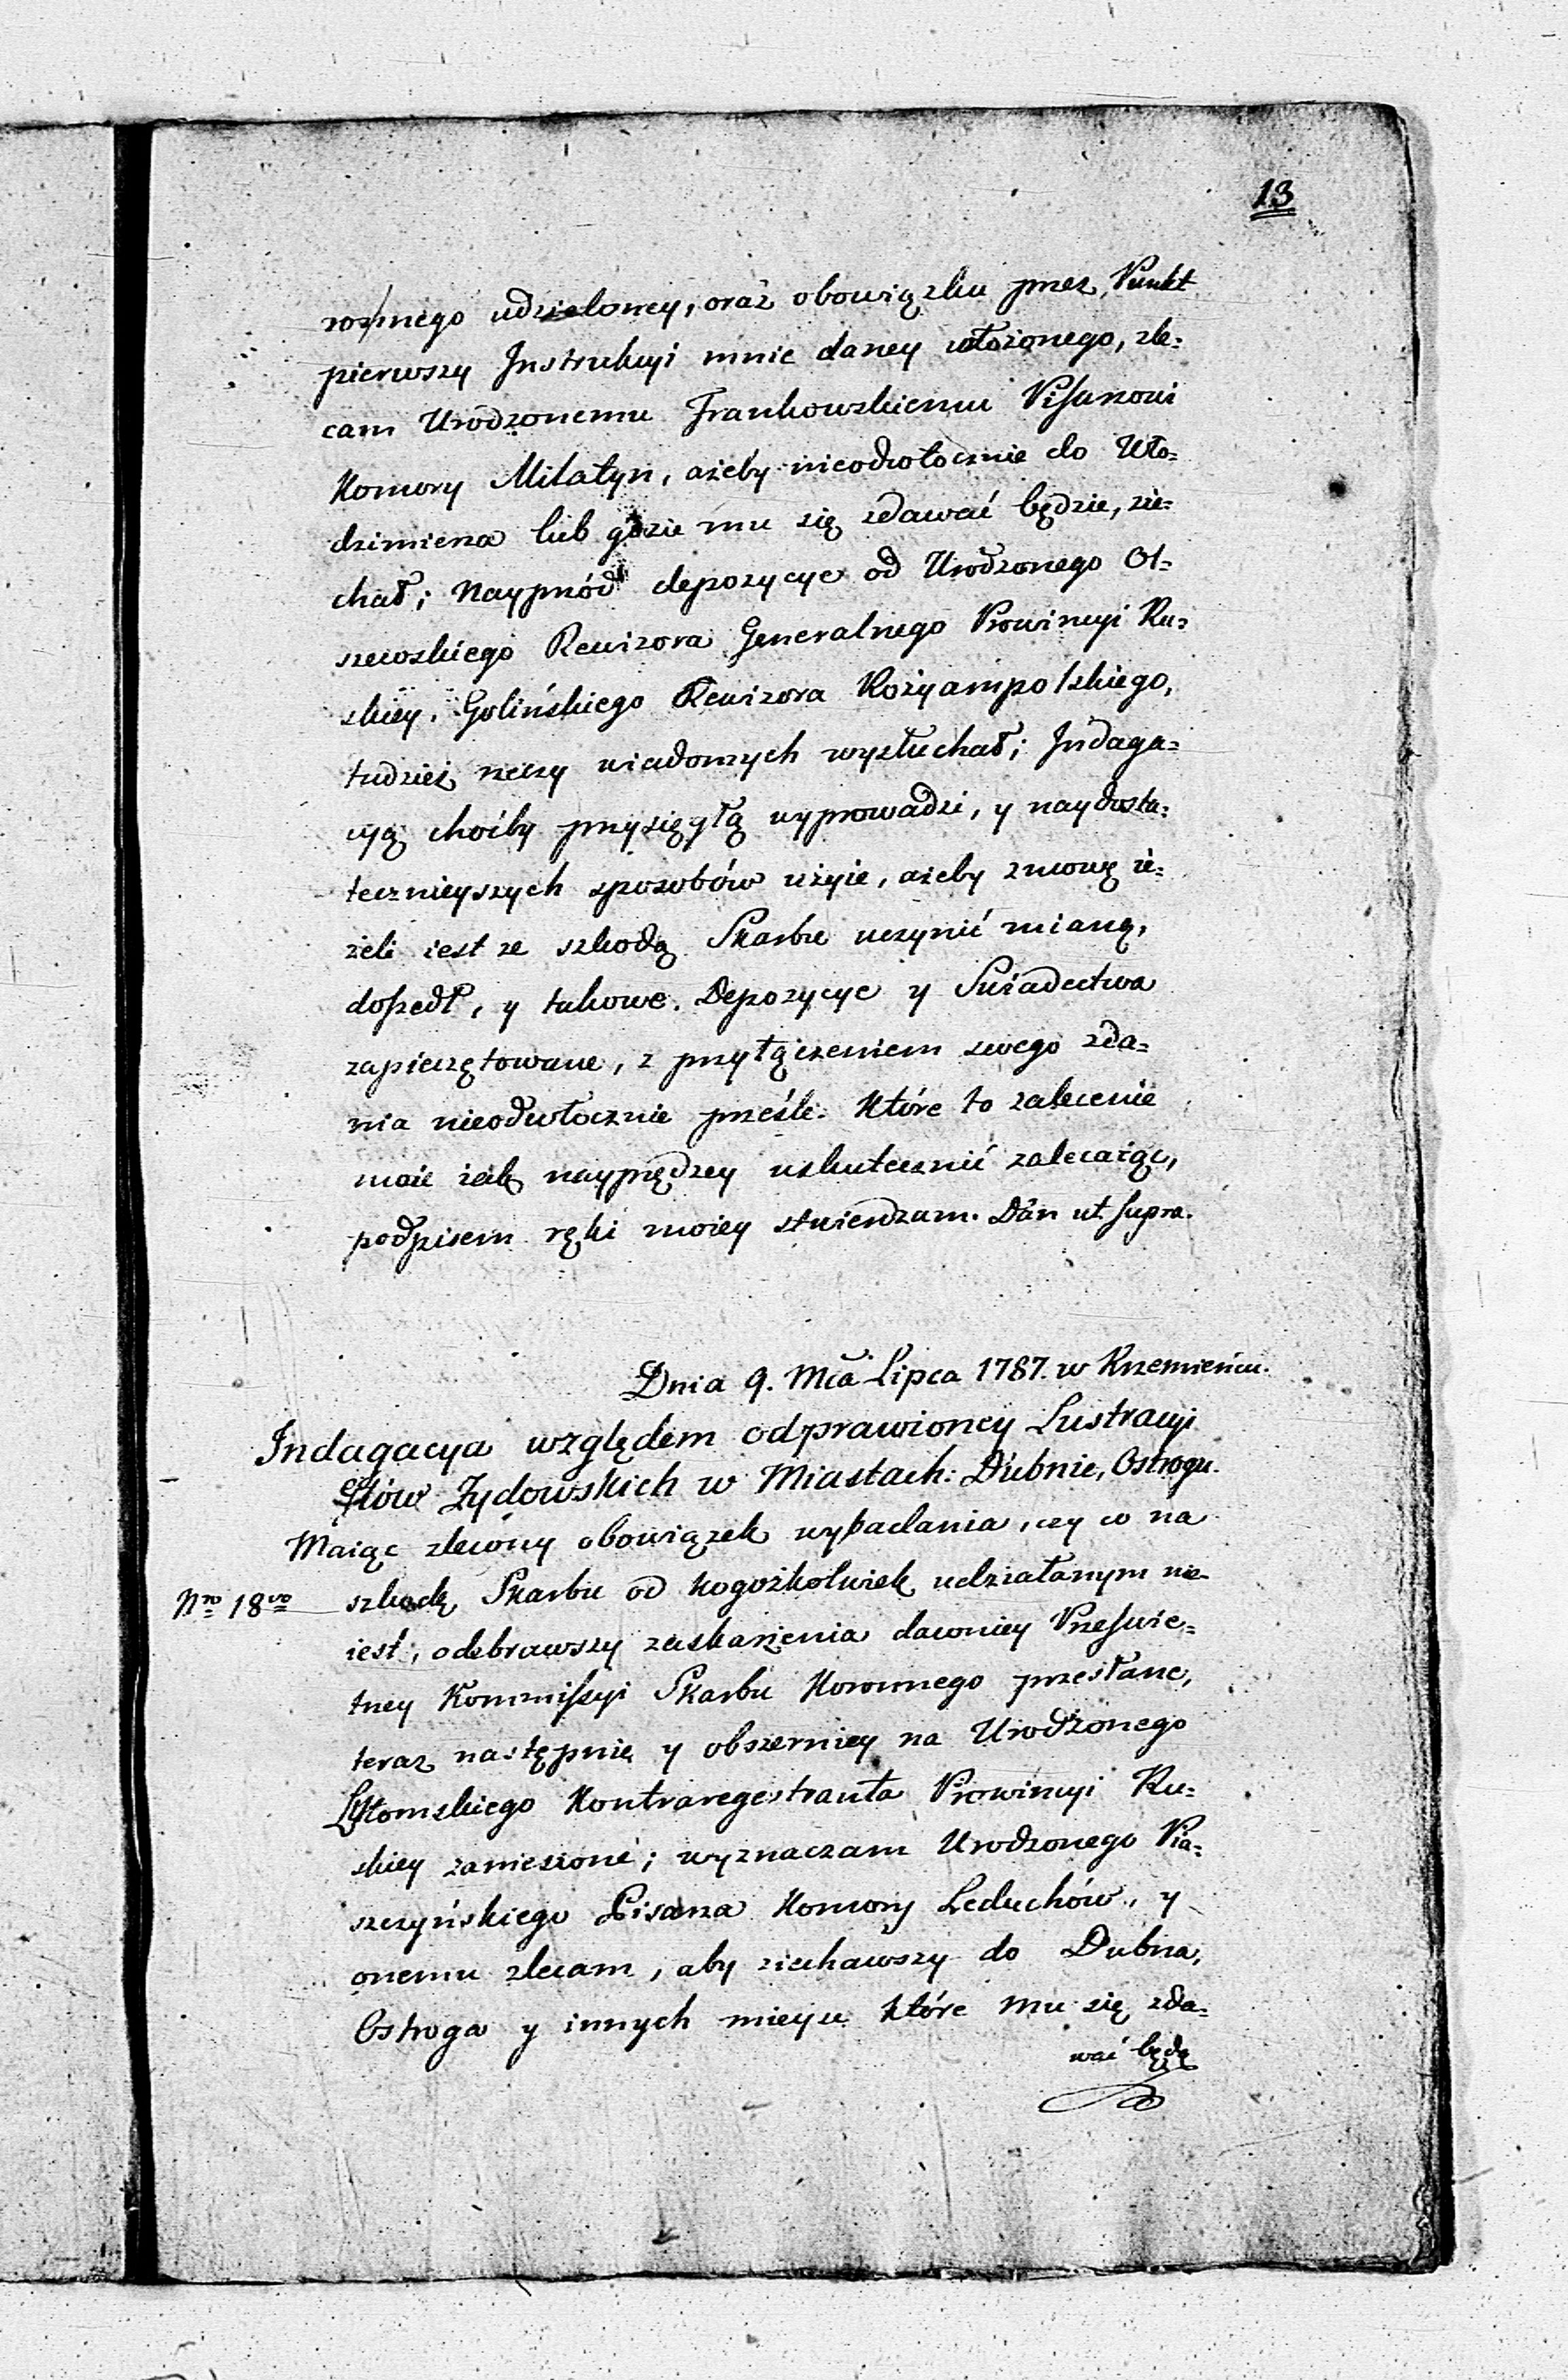 13
rożnego udzieloney, oraz obowiązku przez Punkt
pierwszy Instrukcyi mnie daney włożonego, zle=
cam Urodzonemu Frankowskiemu Pisarzowi
Komory Milatyn, ażeby nieodwłocznie do Wło=
dzimierza lub gdzie mu się zdawać będzie, zie=
chał; Nayprzód depozycye od Urodzonego Ol=
szewskiego Rewizora Generalnego Prowincyi Ru=
skiey, Golińskiego Rewizora Rożyampolskiego,
tudzież rzeczy wiadomych wysłuchał; Indaga=
cyą choćby przysięgłą wyprowadzi, y naydosta=
tecznieyszych sposobów użyie, ażeby zmowę ie=
żeli iest ze szkodą Skarbu uczynić mianą,
doszedł, y takowe Depozycye y Swiadectwa
zapieczętowane, z przyłączeniem swego zda=
nia nieodwłocznie prześle. Które to zalecenie
moie iak nayprędzey uskutecznić zalecaiąc,
podpisem ręki moiey stwierdzam. Dãn ut supra.
Dnia 9. Mca Lipca 1787. w Krzemieńcu.
Indagacya względem odprawioney Lustracyi
Głów Zydowskich w Miastach: Dubnie, Ostrogu.
Maiąc zlecony obowiązek wybadania, czy co na
Nro 18vo szkodę Skarbu od kogożkolwiek udziałanym nie
iest; odebrawszy zaskarżenia dawniey Prześwie=
tney Kommissyi Skarbu Koronnego przesłane,
teraz następnie y obszerniey na Urodzonego
Kontraregestranta Prowincyi Ru=
skiey zaniesione; wyznaczam Urodzonego Pia=
szczyńskiego Pisarza Komory Leduchów, y
onemu zlecam, aby ziechawszy do Dubna,
Ostroga y innych mieysc które mu się zda=
wać będą